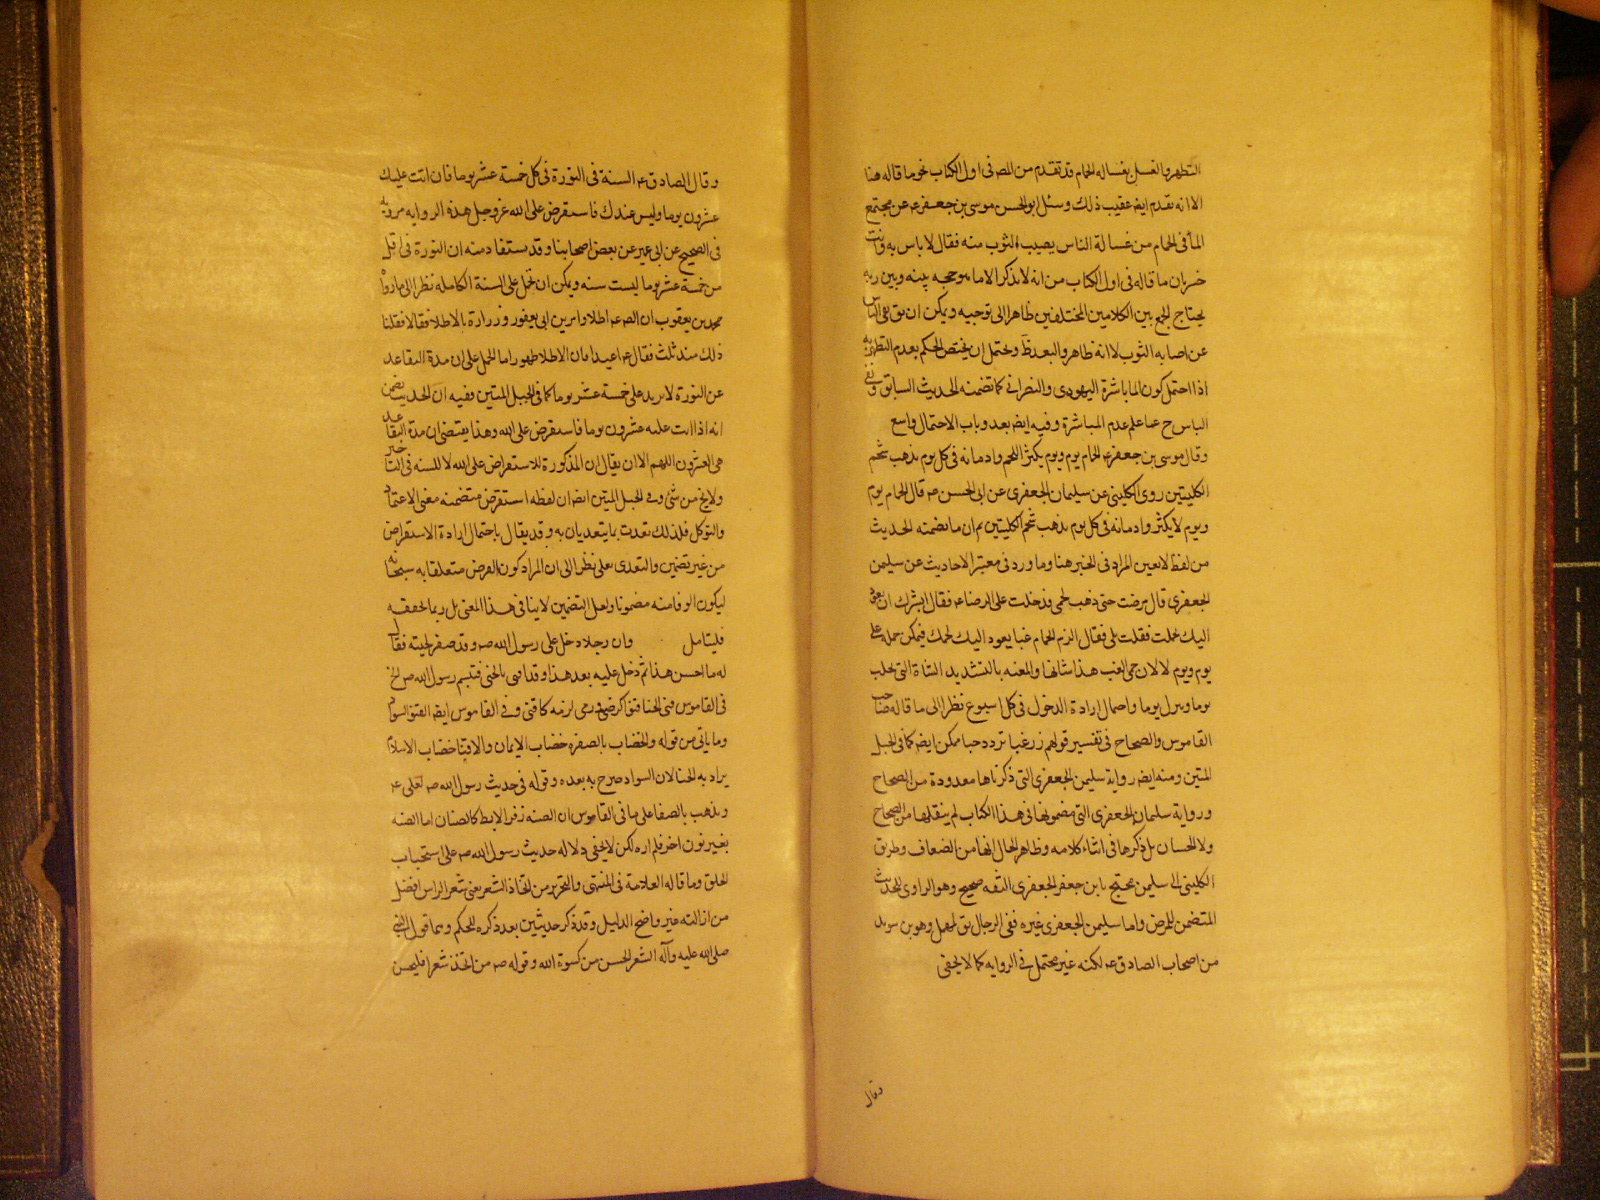 التطهر والغسل بغسالة الحمام قد تقدم من المص فى اول الكتاب نحو ما قاله هنا
الا انه تقدم ايضا عقيب ذلك وسئل ابو الحسن موسى بن جعفر ع عن مجتمع
الماء فى الحمام من غسالة الناس يصيب الثوب منه فقال لا باس به وانت
خبير بان ما قاله فى اول الكتاب من انه لا يذكر الا ما هو حجة بينه وبين ربه
يحتاج الجمع بين الكلامين المختلفين ظاهرا الى توجيه ويمكن ان يق نفى الباس
عن اصابة الثوب لا انه طاهر والبعد ظ ويحتمل ان يختص الحكم بعدم التطهير به
اذا احتمل كون الماء باشرة اليهودى والنصرانى كما تضمنه الحديث السابق ونفى
الباس ح عما علم عدم المباشرة وفيه ايضا بعد وباب الاحتمال واسع
وقال موسى بن جعفر ع الحمام يوم ويوم يكثر اللحم وادمانه فى كل يوم يذهب شحم
الكليتين روى الكلينى عن سليمان الجعفرى عن ابى الحسن ع قال الحمام يوم
ويوم لا يكثر وادمانه فى كل يوم يذهب شحم الكليتين ثم ان ما تضمنه الحديث
من لفظ لا تعين المراد فى الخبر هنا وما ورد فى معتبر الاحاديث عن سليمن
الجعفرى قال مرضت حتى ذهب لحمى فدخلت على الرضا ع فقال ايسرك ان يعود
اليك لحمك فقلت بلى فقال الزم الحمام غبا يعود اليك لحمك فيمكن حمله على
يوم ويوم لا لان حمى الغب هذا شانها والمغبة بالتشديد الشاة التى تحلب
يوما وتترك يوما واحتمال ارادة الدخول فى كل اسبوع نظرا الى ما قاله صاحب
القاموس والصحاح فى تفسير قولهم زر غبا تزدد حبا ممكن ايضا كما فى الحبل
المتين ومنه ايضا رواية سليمن الجعفرى التى ذكرناها معدودة من الصحاح
ورواية سليمان الجعفرى التى مضمونها فى هذا الكتاب لم ينقلها من الصحاح
ولا الحسان بل ذكرها فى اثناء كلامه وظاهر الحال انها من الضعاف وطريق
الكلينى الى سليمن يحتج بابن جعفر الجعفرى الثقه صحيح وهو الراوى للحديث
المتضمن للمرض واما سليمن الجعفرى غيره ففى الرجال يق مهمل وهو بن سويد
من اصحاب الصادق ع لكنه غير محتمل فى الرواية كما لا يخفى
وقال
وقال الصادق ع السنة فى النورة فى كل خمسة عشر يوما فان اتت عليك
عشرون يوما وليس عندك فاستقرض على الله عز وجل هذه الرواية مروية
فى الصحيح عن ابى عمير عن بعض اصحابنا وقد يستفاد منه ان النورة فى اقل
من خمسة عشر يوما ليست سنة ويمكن ان تحمل على السنة الكاملة نظرا الى ما رواه
محمد بن يعقوب ان الص ع اطلا وامر بن ابى يعفور وزرارة بالاطلا فقالا فعلنا
ذلك منذ ثلث فقال ع اعيدا فان الاطلا طهور اما الحمل على ان مدة التقاعد
عن النورة لا يزيد على خمسة عشر يوما كما فى الحبل المتين ففيه ان الحديث تضمن
انه اذا اتت عليه عشرون يوما فاستقرض على الله وهذا يقتضى ان مدة التقاعد
هى العشرون اللهم الا ان يقال ان المذكورة للاستقراض على الله لا للسنة فى التاخير
ولا يخ من شئ وفى الحبل المتين ايضا ان لفظة استقرض متضمنه معنى الاعتماد
والتوكل فلذلك تعدت بما يتعديان به وقد يقال باحتمال ارادة الاستقراض
من غير تضمين والتعدى بعلى نظرا الى ان المراد كون القرض متعلقا به سبحانه
ليكون الوفا منه مضمونا ولعل التضمين لا ينافى هذا المعنى بل ربما يحققه
فليتامل وان رجلا دخل على رسول الله ص وقد صفر لحيته فقال
له ما احسن هذا ثم دخل عليه بعد هذا وقد اقنى بالحنى فتبسم رسول الله ص الخ
فى القاموس قنى الحنا قنوا كرضى ورمى لزمه كاقنى وفى القاموس ايضا القنو السواد
وما ياتى من قوله والخضاب بالصفره خضاب الايمان والاقنا خضاب الاسلام
يراد به الحنا لان السواد صرح به بعده وقوله فى حديث رسول الله ص لعلى ع
ويذهب بالصنا على ما فى القاموس ان الصنه زفر الابط كالصنان اما الصنه
بغير نون اخر فلم اره لكن لا يخفى دلاله حديث رسول الله ص على استحباب
الحلق وما قاله العلامة فى المنتهى والتحرير من اتخاذ الشعر يعنى شعر الراس افضل
من ازالته غير واضح الدليل وقد ذكر حديثين بعد ذكره للحكم وهما قول النبى
صلى الله عليه وآله الشعر الحسن من كسوة الله وقوله ص من اتخذ شعرا فليحسن